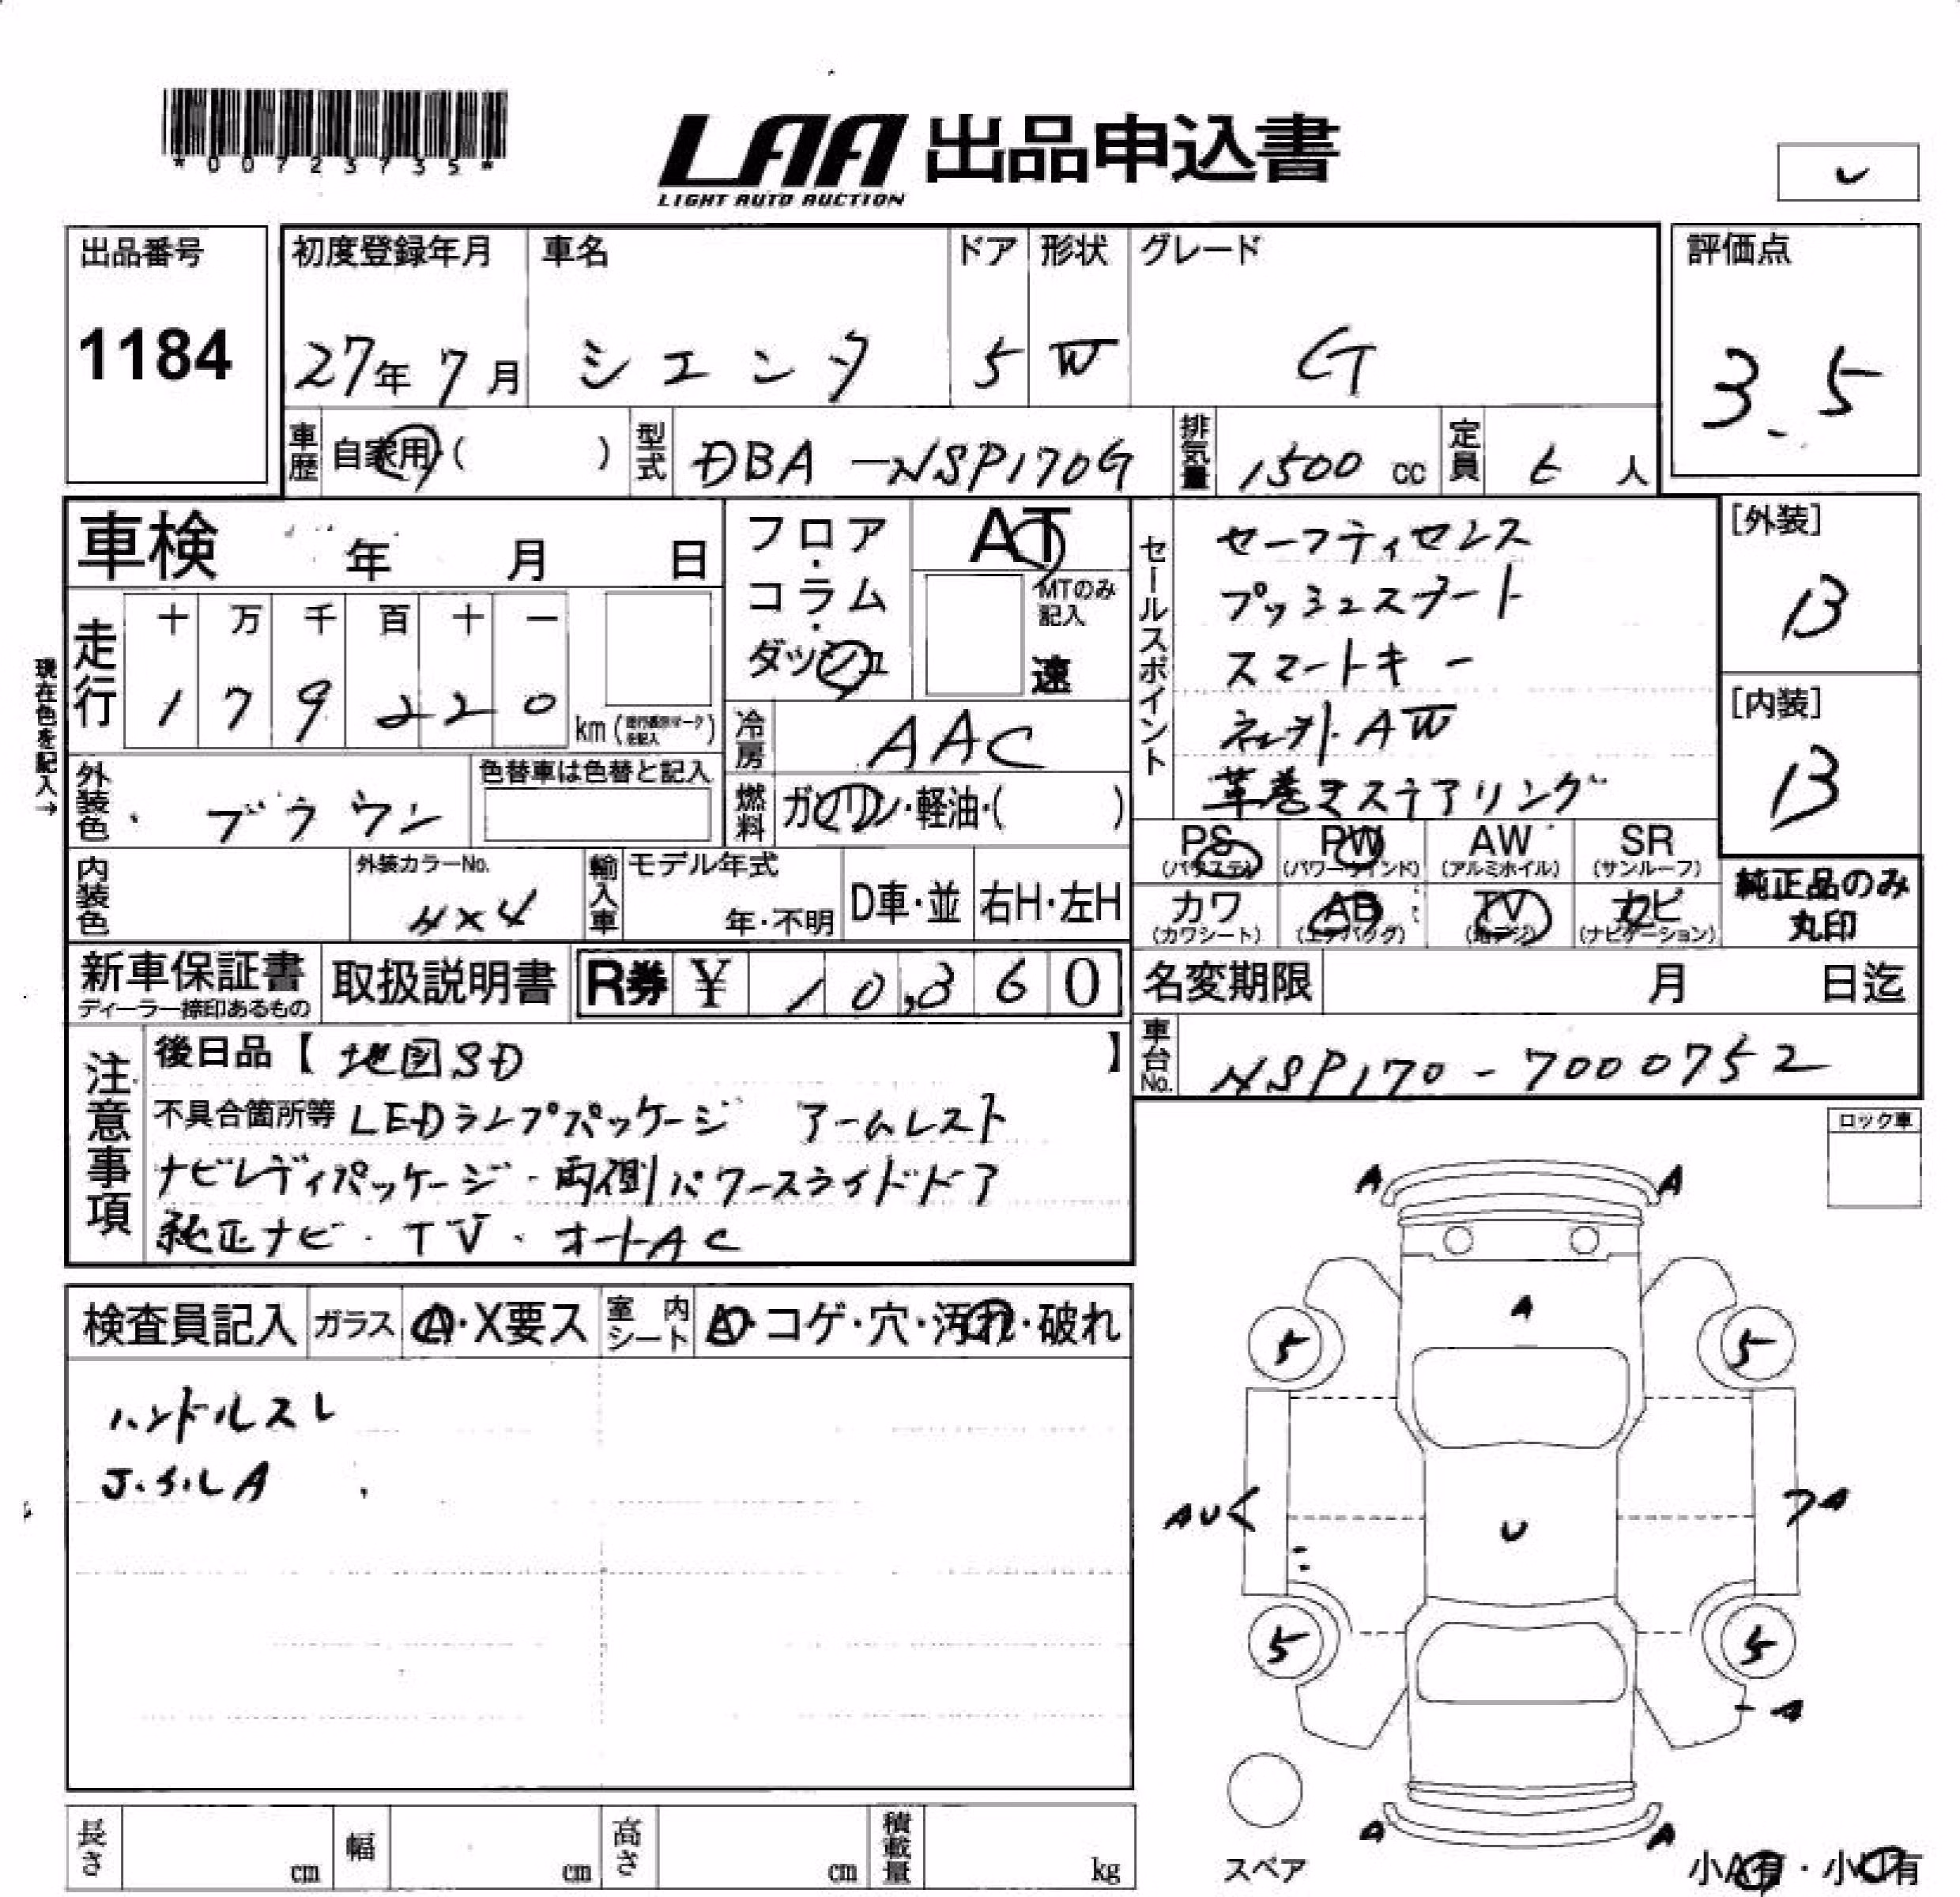 *00723735*
LAA 出品申込書
LIGHT AUTO AUCTION
出品番号
1184
初度登録年月
27年 7月
車名
シエンタ
ドア
5
形状
W
グレード
G
評価点
3.5
車歴
自家用・( )
型式
DBA-NSP170G
排気量
1500 cc
定員
6 人
車検 年 月 日
フロア・コラム・ダッシュ
AT
MTのみ記入
速
セールスポイント
セーフティセンス
プッシュスタート
スマートキー
AW
革巻きステアリング
[外装]
B
[内装]
B
現在色を記入→
走行
十 万 千 百 十 一
1 7 9 2 2 0
km
冷房
AAC
外装色
ブラウン
色替車は色替と記入
燃料
ガソリン・軽油・( )
PS (パワステ)
PW (パワーウインド)
AW (アルミホイル)
SR (サンルーフ)
カワ (カワシート)
AB (エアバック)
TV (地デジ)
ナビ (ナビゲーション)
純正品のみ
丸印
内装色
外装カラーNo.
4X4
輸入車
モデル年式
年・不明
D車・並
右H・左H
新車保証書
ディーラー捺印あるもの
取扱説明書
R券 ¥ 10,860
名変期限 月 日迄
車台No.
NSP170-7000752
注意事項
後日品【 地図SD 】
不具合箇所等 LEDランプパッケージ アームレスト
ナビレディパッケージ・両側パワースライドドア
純正ナビ・TV・オートAC
ロック車
検査員記入
ガラス
A・X要ス
室内シート
A・コゲ・穴・汚れ・破れ
ハンドルスレ
A
A
A
5
5
AU
U
A
5
5
A
A
A
スペア
小A有・小U有
長さ cm
幅 cm
高さ cm
積載量 kg